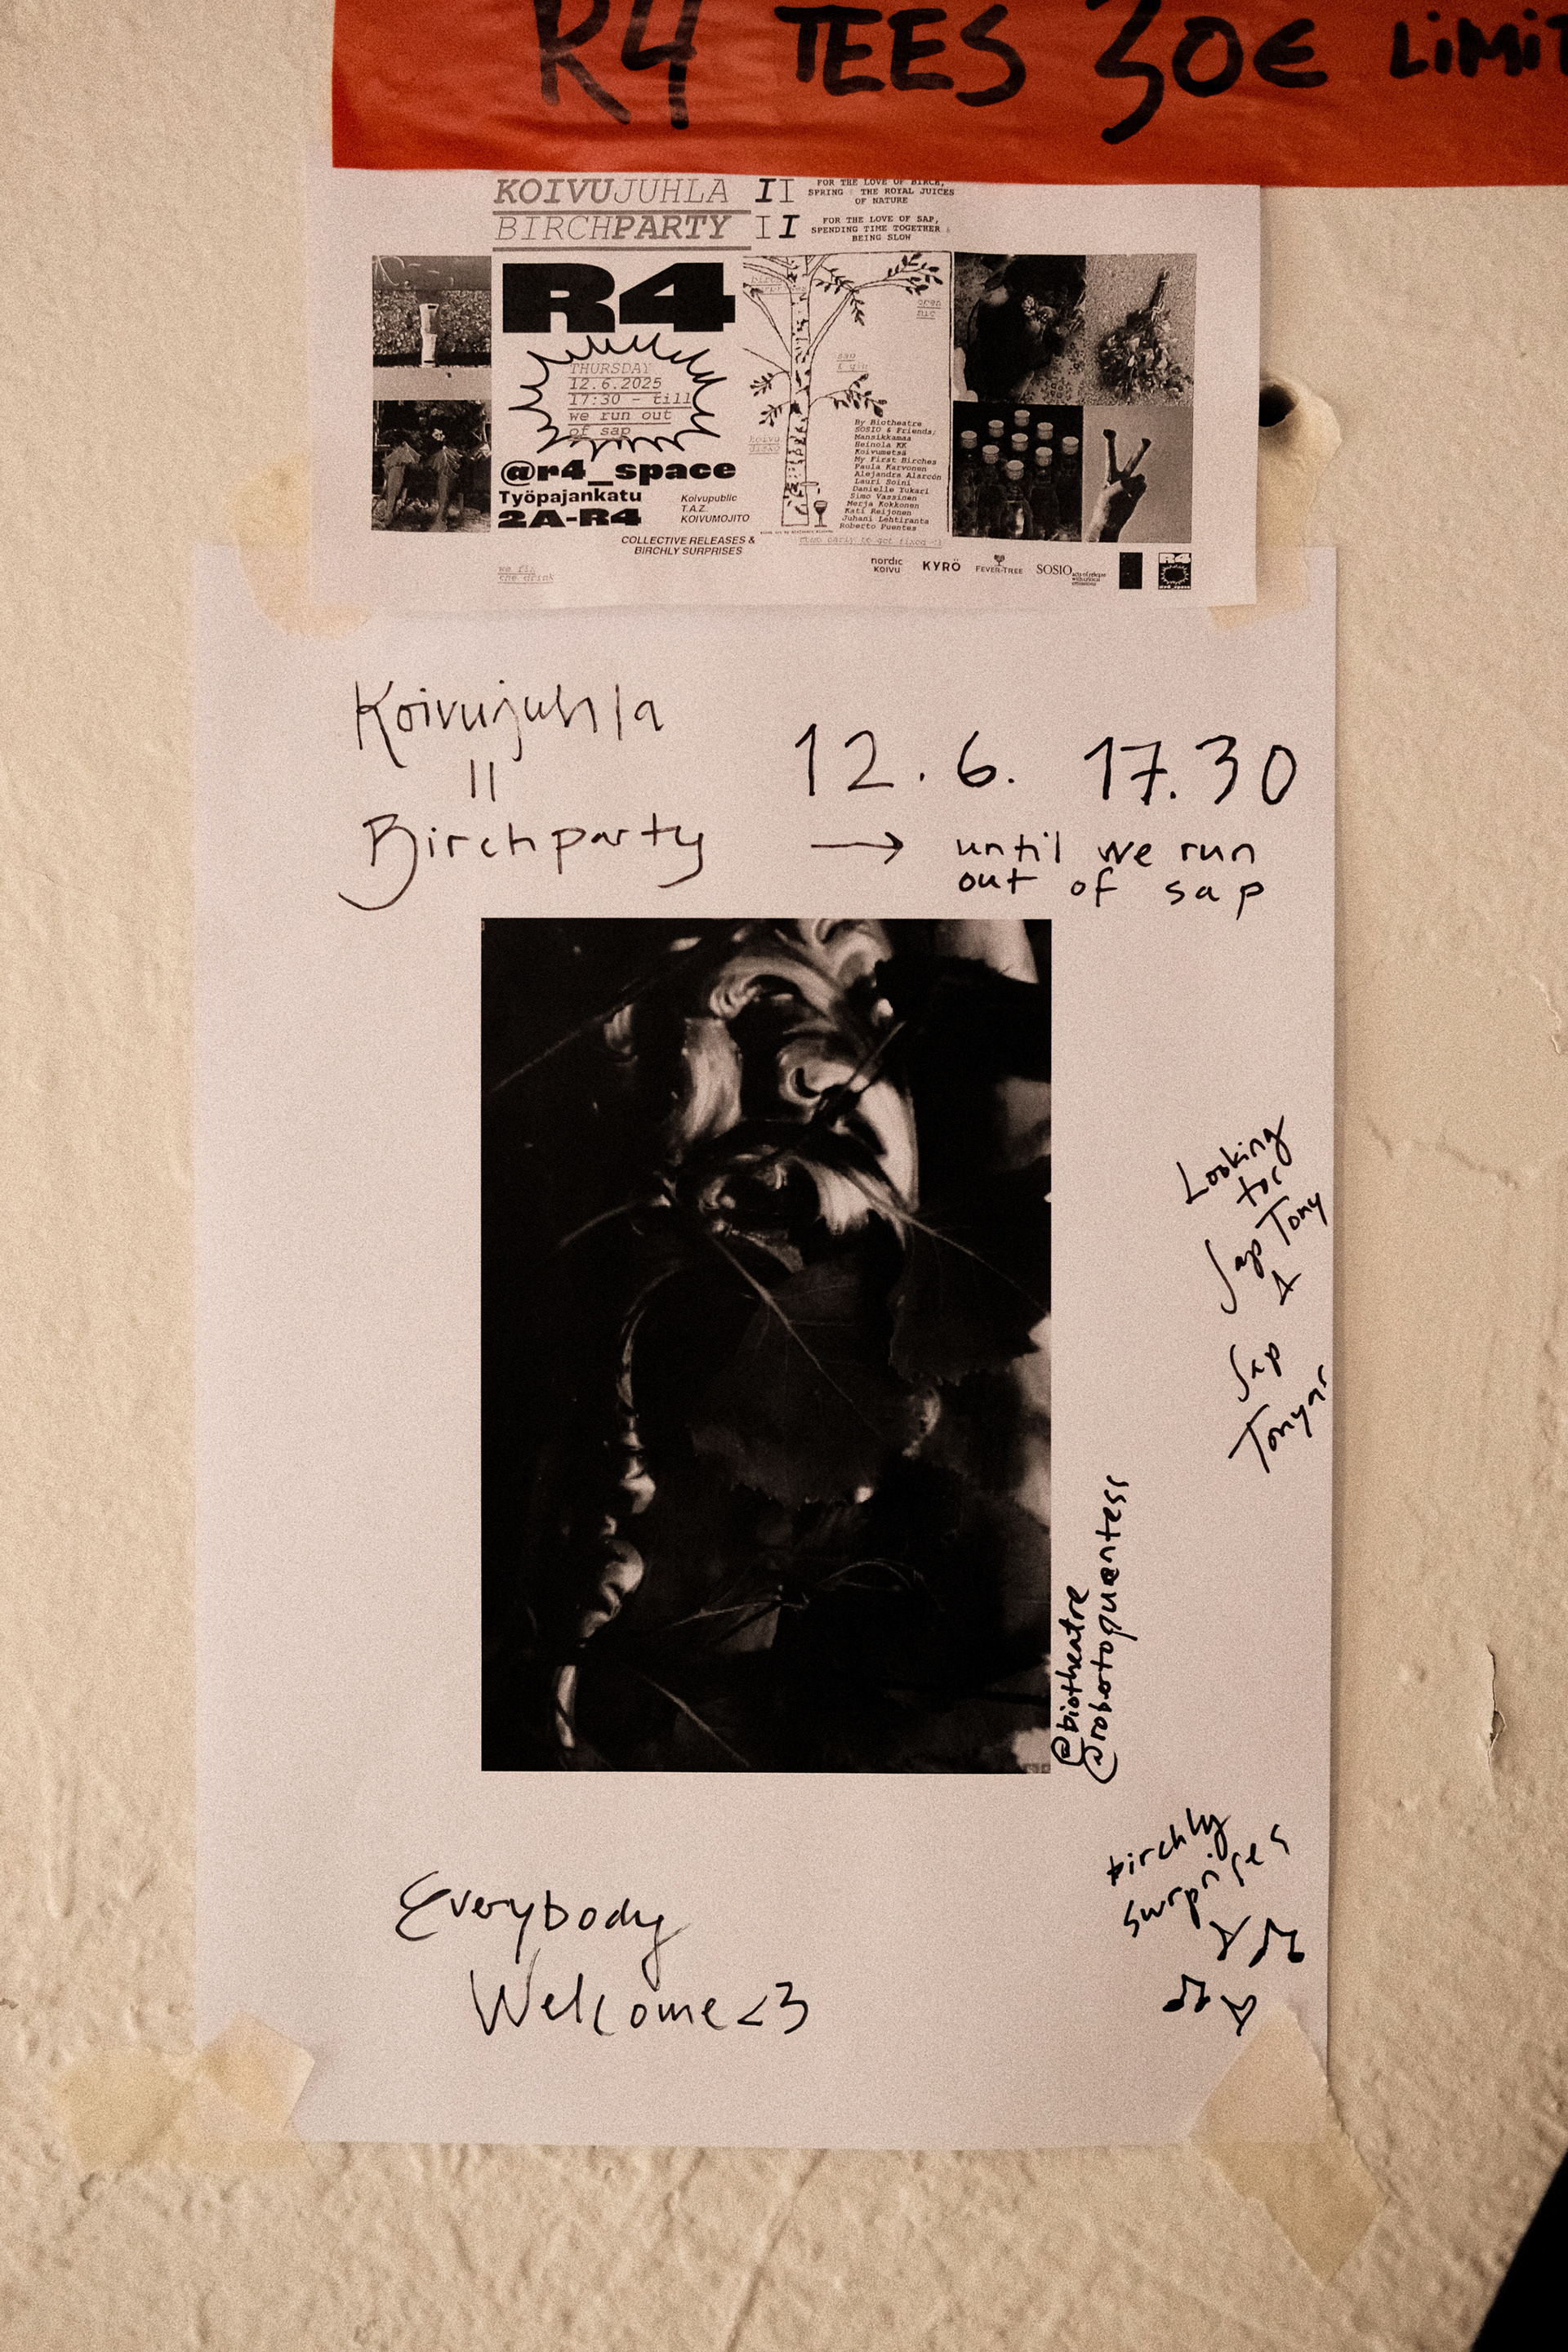 R4 TEES 30€ LIMIT
KOIVUJUHLA II
BIRCHPARTY II
FOR THE LOVE OF BIRCH,
SPRING & THE ROYAL JUICES
OF NATURE
FOR THE LOVE OF SAP,
SPENDING TIME TOGETHER &
BEING SLOW
R4
THURSDAY
12.6.2025
17:30 - till
we run out
of sap
@r4_space
Työpajankatu
2A-R4
Koivupublic
T.A.Z.
KOIVUMOJITO
COLLECTIVE RELEASES &
BIRCHLY SURPRISES
we fix
the drink
koivu
disko
By Biotheatre
SOSIO & Friends;
Mansikkamaa
Heinola KK
Koivumetsä
My First Birches
Paula Karvonen
Alejandra Alarcón
Lauri Soini
Danielle Yukari
Simo Vassinen
Merja Kokkonen
Kati Reijonen
Juhani Lehtiranta
Roberto Puentes
nordic
KOIVU
KYRÖ
FEVER-TREE
SOSIO
R4
Koivujuhla
=
Birchparty
12.6. 17.30
→ until we run
out of sap
Looking
for
Sap Tony
&
Sap
Tonyar
@biotheatre
@robotopuentess
birchly
surprises
Everybody
Welcome <3